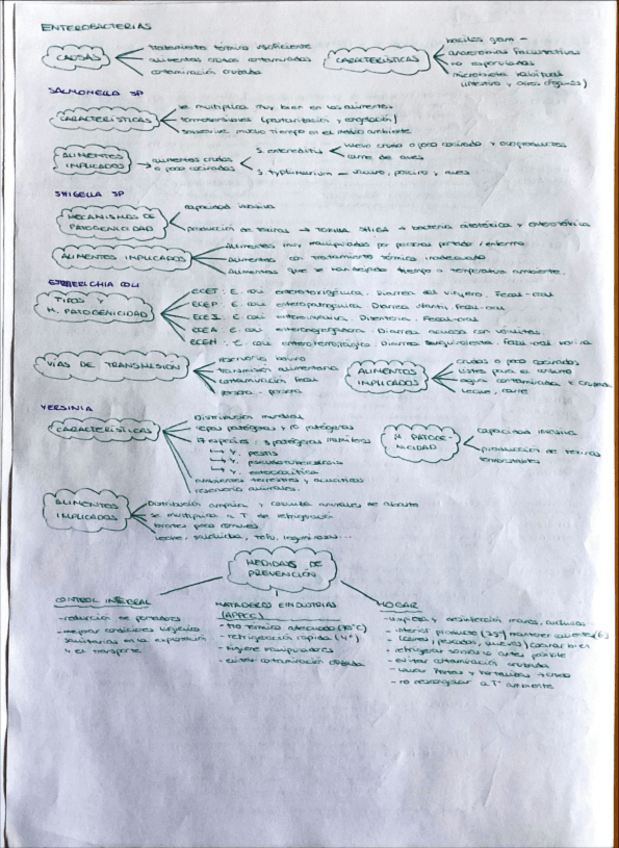 ENTEROBACTERIAS
CAUSAS
tratamiento térmico insuficiente
alimentos crudos contaminados
contaminación cruzada
CARACTERÍSTICAS
bacilos gram -
anaerobias facultativas
no esporuladas
microbiota
(intestino y otros órganos)
SALMONELLA SP
CARACTERÍSTICAS
se multiplica muy bien en los alimentos
termosensibles (pasteurización y congelación)
sobrevive mucho tiempo en el medio ambiente
ALIMENTOS IMPLICADOS
alimentos crudos o poco cocinados
S. enteritidis
huevo crudo o poco cocinado y ovoproductos
carne de aves
S. typhimurium — porcino y aves
SHIGELLA SP
MECANISMOS DE PATOGENICIDAD
capacidad invasiva
producción de toxinas → TOXINA SHIGA → bacteria citotóxica y enterotóxica
ALIMENTOS IMPLICADOS
Alimentos muy manipulados por persona portador/enfermo
Alimentos con tratamiento térmico inadecuado
Alimentos que se han dejado tiempo a temperatura ambiente.
ESCHERICHIA COLI
TIPOS Y M. PATOGENICIDAD
ECET. E. coli enterotoxigénica. Diarrea del viajero. Fecal-oral
ECEP. E. coli enteropatogénica. Diarrea infantil. Fecal-oral
ECEI. E. coli enteroinvasiva. Disentería. Fecal-oral
ECEA. E. coli enteroagregativa. Diarrea acuosa con vómitos.
ECEH. E. coli enterohemorrágica. Diarrea sanguinolenta. Fecal-oral
VÍAS DE TRANSMISIÓN
reservorio bovino
transmisión alimentaria
contaminación fecal
persona - persona
ALIMENTOS IMPLICADOS
crudos o poco cocinados
listos para el consumo
agua contaminada
Leche, carne
YERSINIA
CARACTERÍSTICAS
Distribución mundial
cepas patógenas y no patógenas
17 especies: 3 patógenas
↳ Y. pestis
↳ Y. pseudotuberculosis
↳ Y. enterocolitica
ambientes terrestres y acuáticos
reservorio animales.
M. PATOGENICIDAD
capacidad invasiva
producción de toxinas
termoestables
ALIMENTOS IMPLICADOS
Distribución amplia y animales de abasto
se multiplica a T° de refrigeración
brotes poco comunes
leche, salchicha, tofu,
MEDIDAS DE PREVENCIÓN
CONTROL INTEGRAL
- reducción de portadores
- mejorar condiciones higiénico
sanitarias en la explotación
y el transporte
MATADEROS E INDUSTRIAS
(APPCC)
- Tto térmico adecuado (70°C)
- refrigeración rápida (4°)
- higiene manipuladores
- evitar contaminación cruzada
HOGAR
- limpieza y desinfección manos,
(carnes, pescados, huevos) cocinar bien
- refrigerar sobras lo antes posible
- evitar contaminación cruzada
- lavar frutas y hortalizas
- no descongelar a T° ambiente